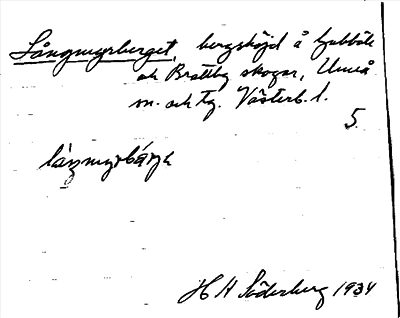 Långmyrberget, bergshöjd å Gubböle
och Brattby skogar, Umeå
m. och tg. Västerb. l.
5.
långmyrbárjə
H A Söderberg 1934